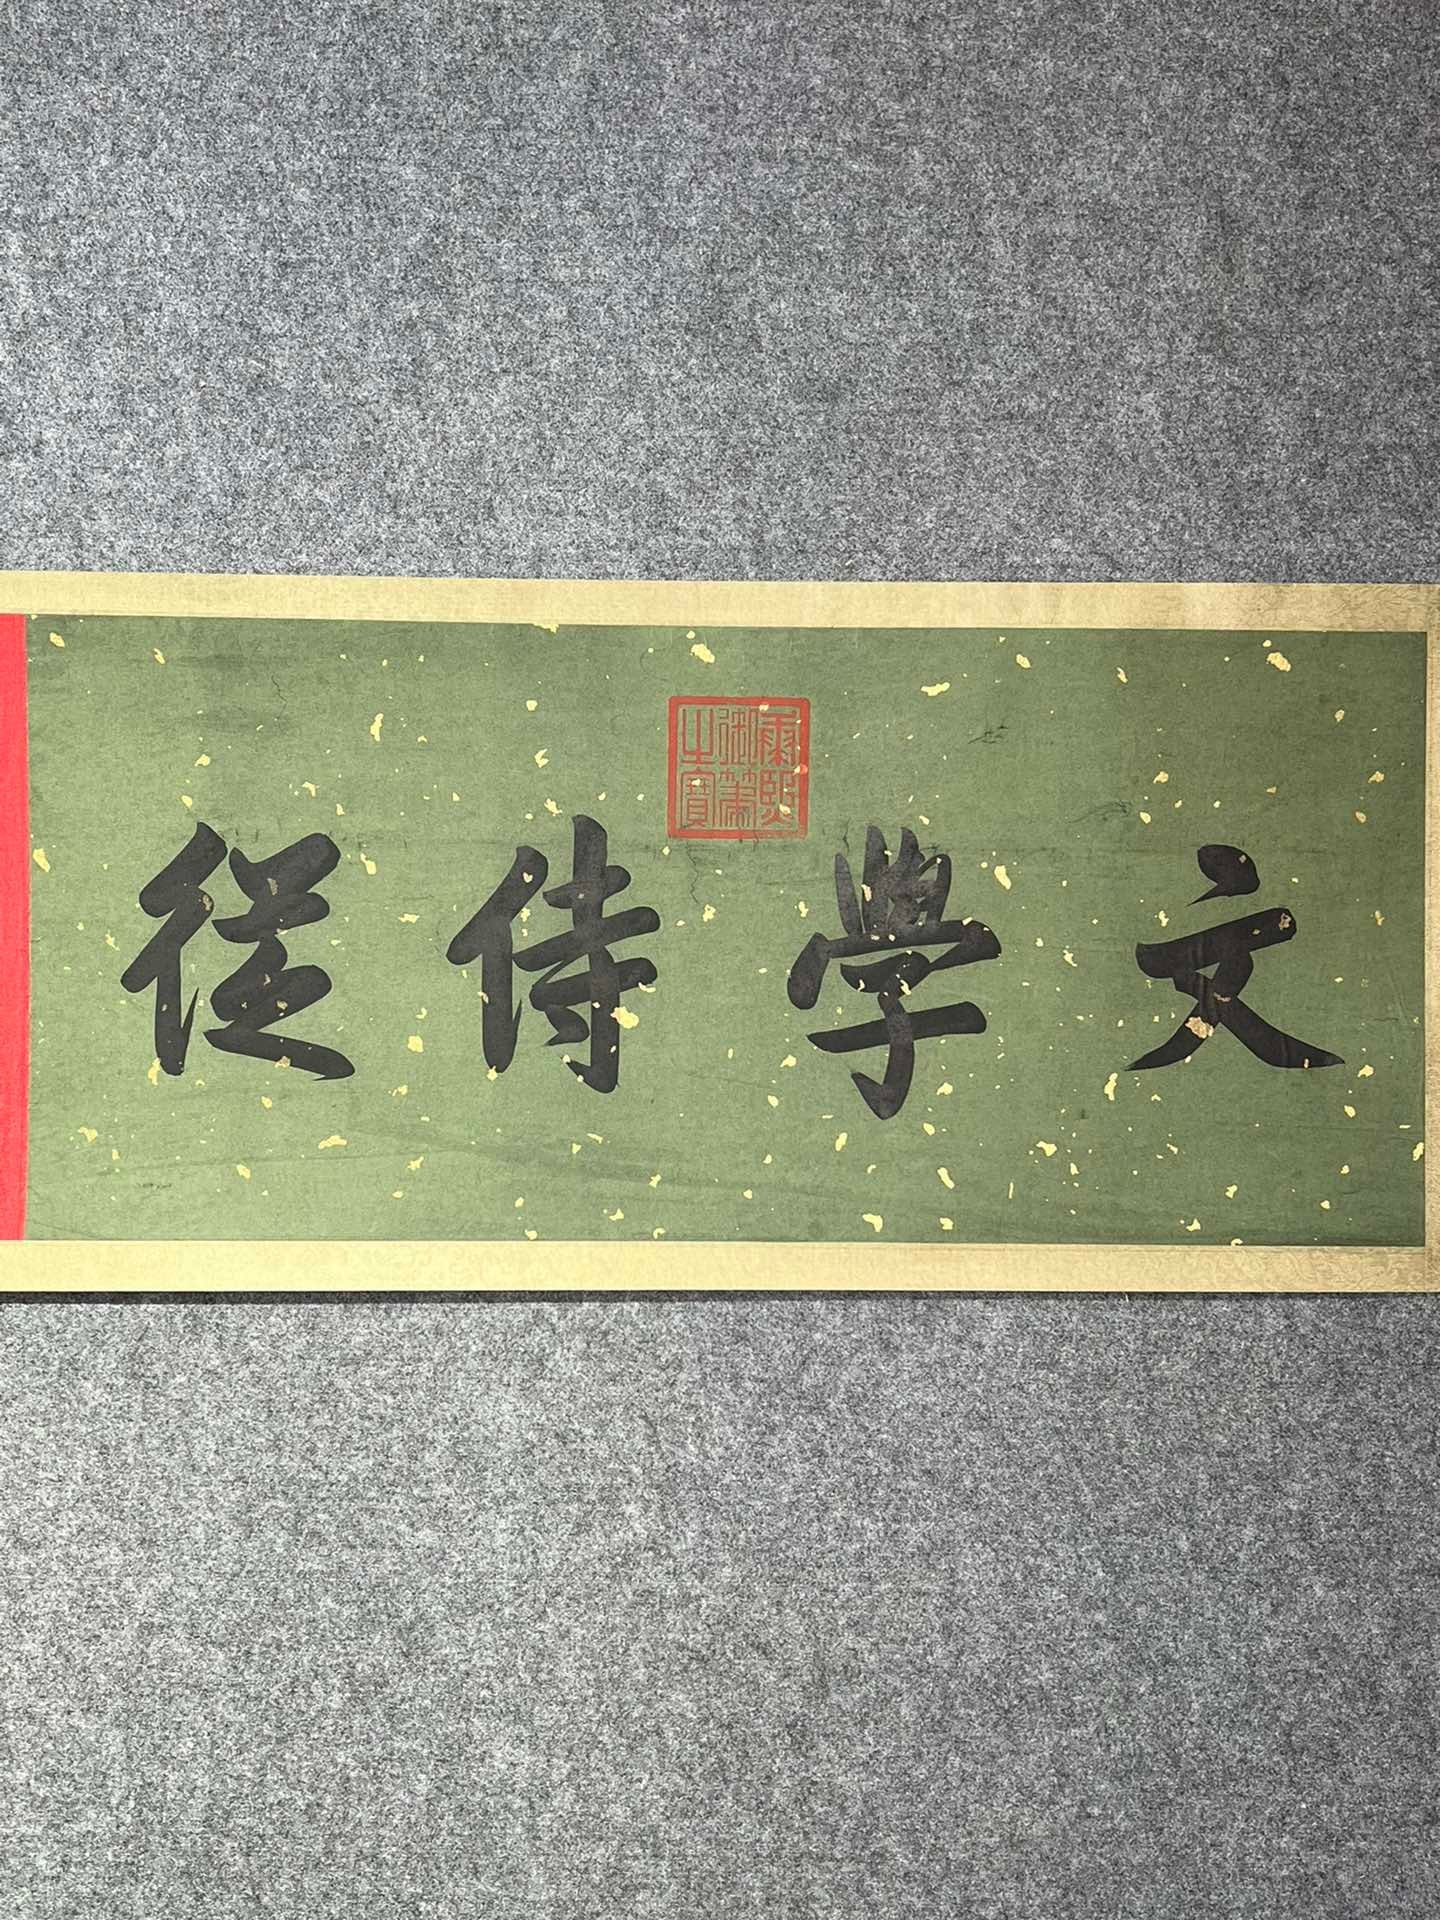 文學侍從
康熙御筆之寶